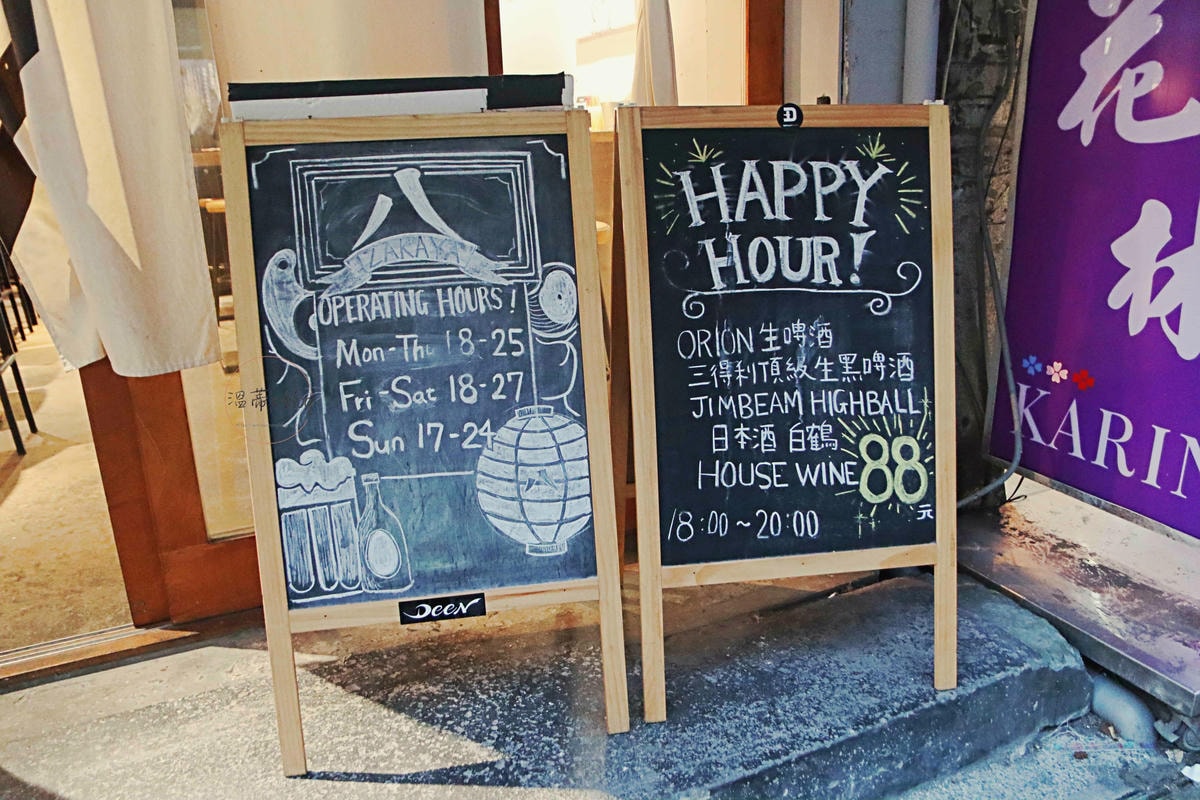 八
IZAKAYA
OPERATING HOURS!
Mon-Thu 18-25
Fri-Sat 18-27
Sun 17-24
八
DeeN
溫蒂
HAPPY
HOUR!
ORION 生啤酒
三得利頂級生黑啤酒
JIMBEAM HIGHBALL
日本酒 白鶴
HOUSE WINE 88元
18:00~20:00
花
林
KARIN